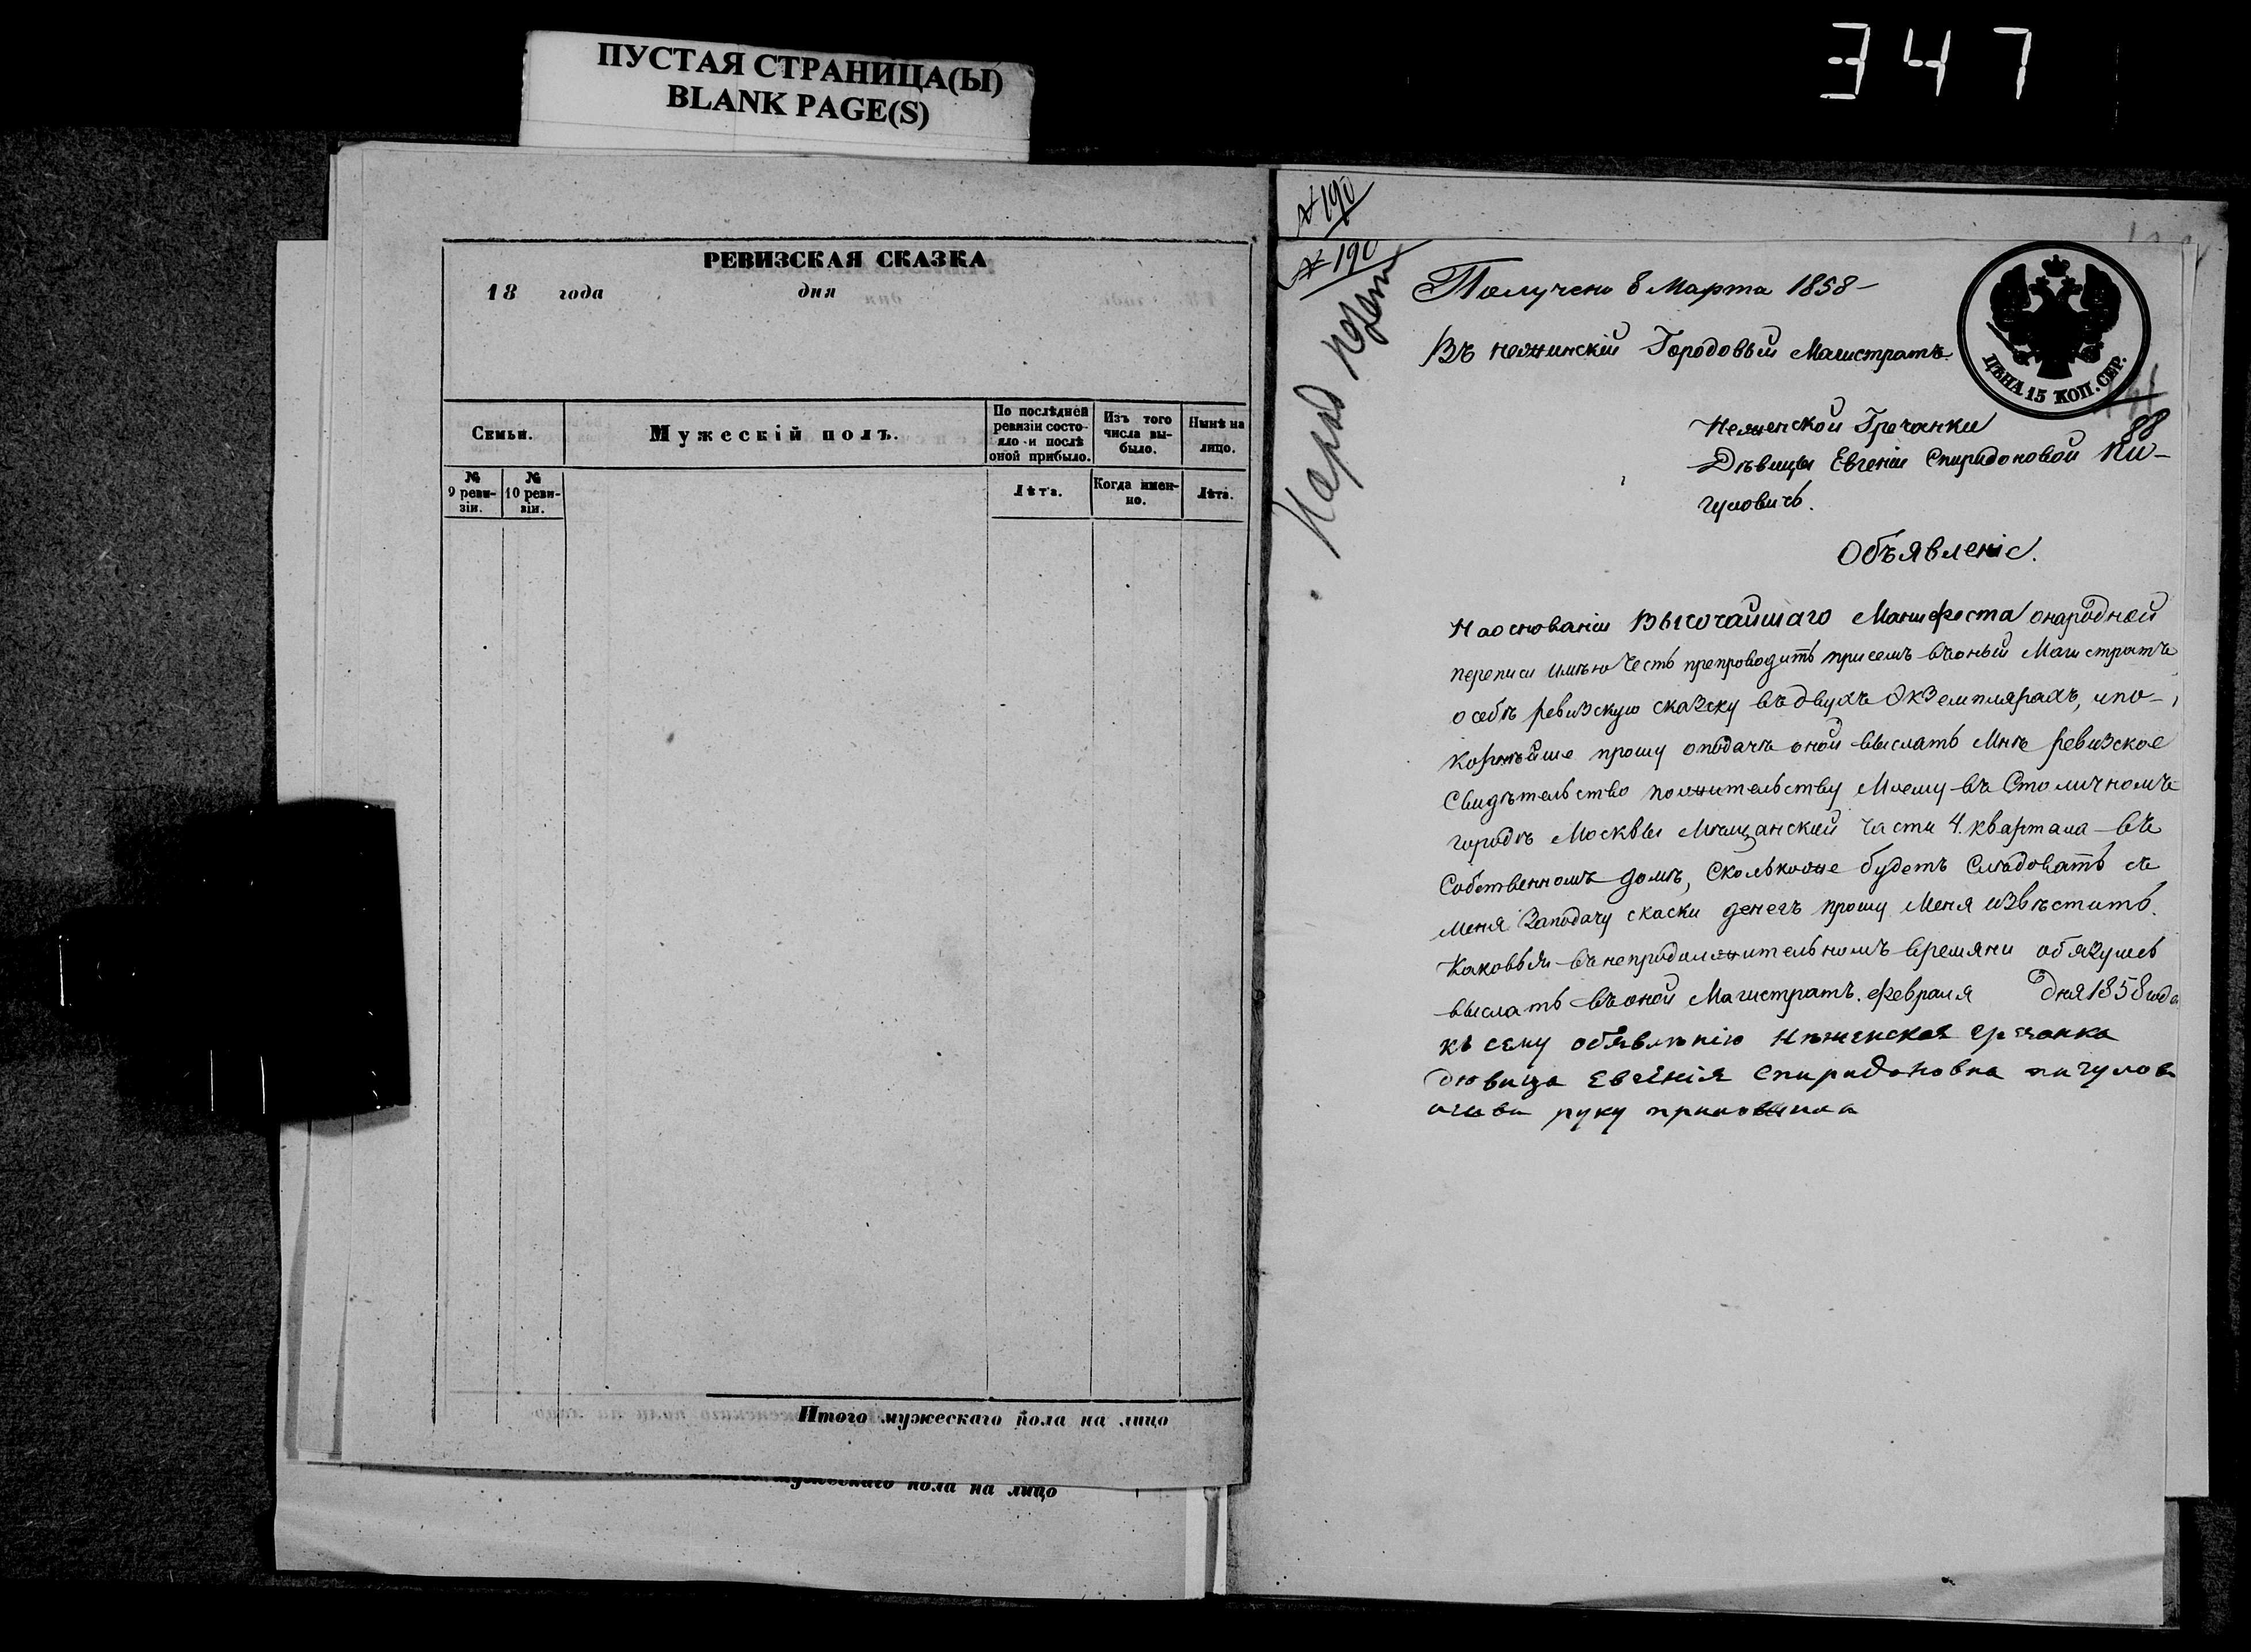 ПУСТАЯ СТРАНИЦА(Ы)
BLANK PAGE(S)
347
РЕВИЗСКАЯ СКАЗКА
18 года дня
Семьи.
Мужескій полъ.
По послѣдней ревизіи состояло и послѣ оной прибыло.
Изъ того числа выбыло.
Нынѣ на лицо.
№ 9 ревизіи.
№ 10 ревизіи.
Лѣта.
Когда именно.
Лѣта.
Итого мужескаго пола на лицо
мужескаго пола на лицо
№ 190
№ 190
Получено 8 Марта 1858
ЦѢНА 15 КОП. СЕР.
88
Въ нежинскій Городовый Магистратъ
Неженской Гречанки
Дѣвицы Евгеніи Спиридоновой Пи-
чуловичь.
Объявленіе.
На основаніи Высочайшаго Манифеста онародной
переписи имѣю Честь препроводить присемъ въоный Магистратъ
о себѣ ревизскую сказку въ двухъ Экземплярахъ, ипо-
корнѣйше прошу оподачѣ оной выслать Мнѣ ревизское
Свидѣтельство пожительству Моему въ Столичномъ
городѣ Москвы Мѣщанской части 4. квартала въ
Собственномъ домѣ, Сколькоже будетъ Слѣдовать съ
меня Заподачу скаски денегъ прошу Меня извѣстить.
Каковыя въ непродолжительномъ времяни обязуюсь
выслать въ оной Магистратъ. февраля дня 1858 года
къ сему обявлѣнію Нѣженская гречанка
дѣвица Евгѣнія Спиридоновна пичулов
ичева руку приложила